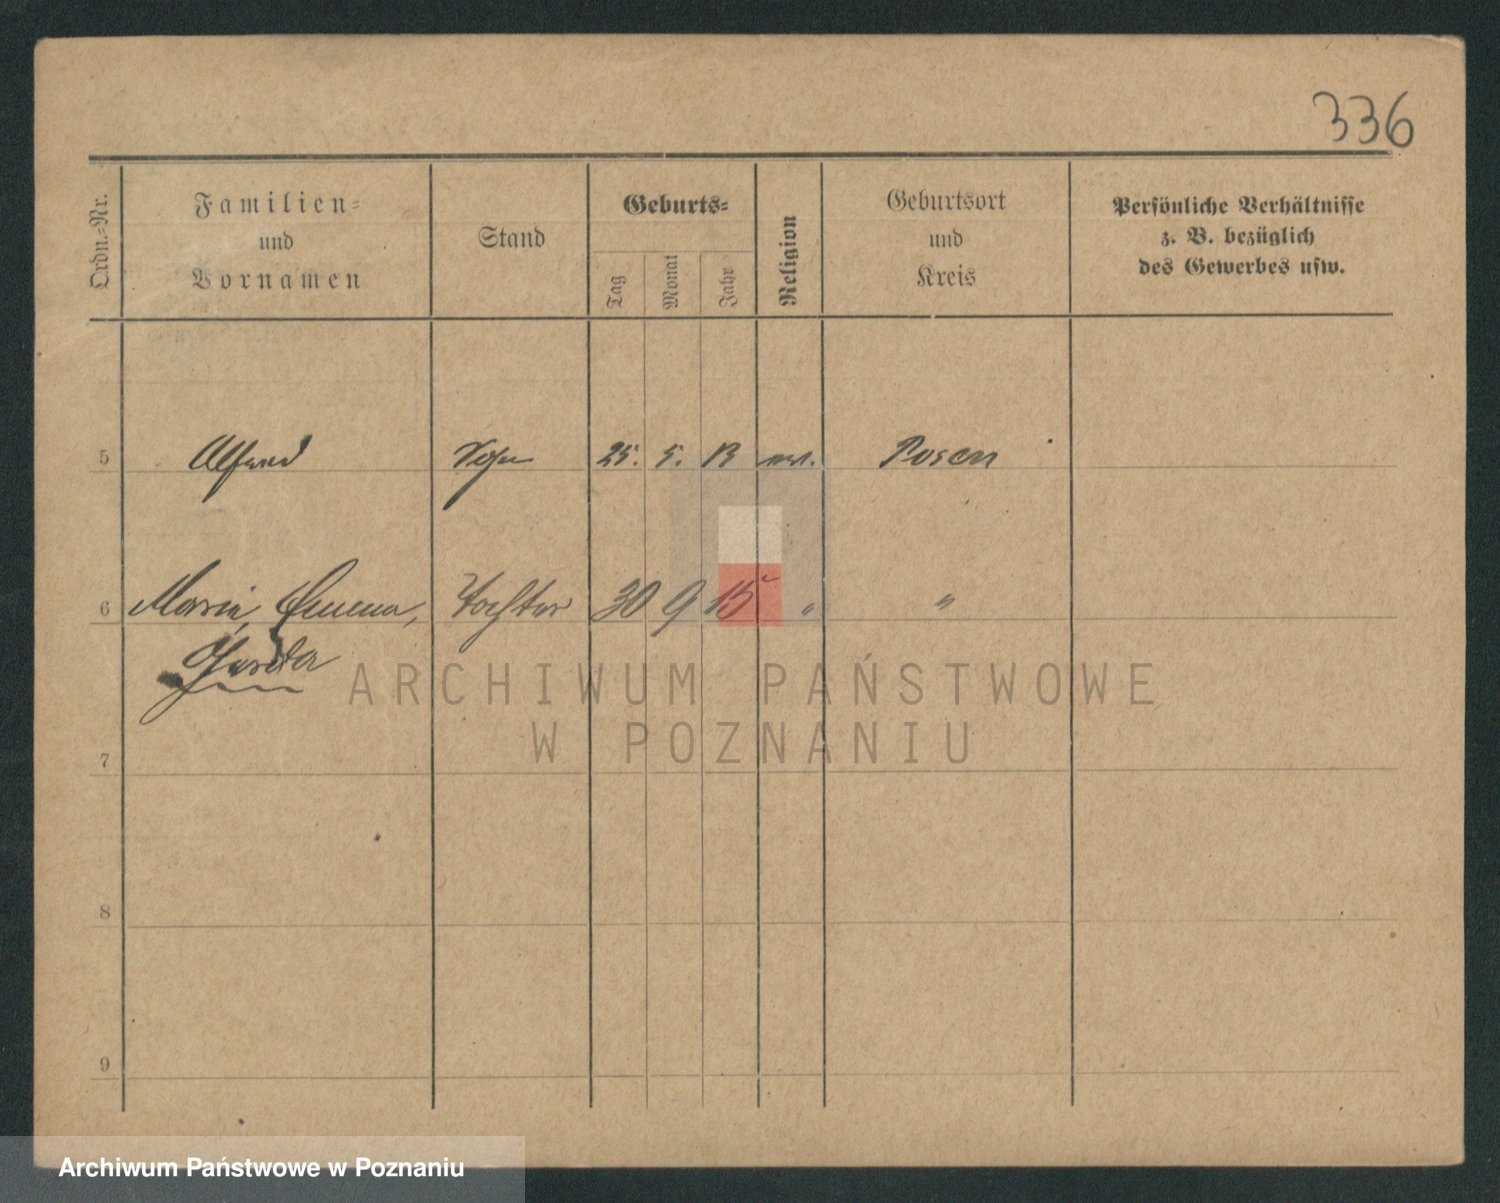 336
Ordn.-Nr.
Familien-
und
Vornamen
Stand
Geburts-
Tag
Monat
Jahr
Religion
Geburtsort
und
Kreis
Persönliche Verhältnisse
z. B. bezüglich
des Gewerbes usw.
5 Alfred Sohn 25. 5. 13 ev. Posen
6 Marie, Emma, Tochter 30 9 15 " "
Gerda
7
8
9
ARCHIWUM PAŃSTWOWE
W POZNANIU
Archiwum Państwowe w Poznaniu